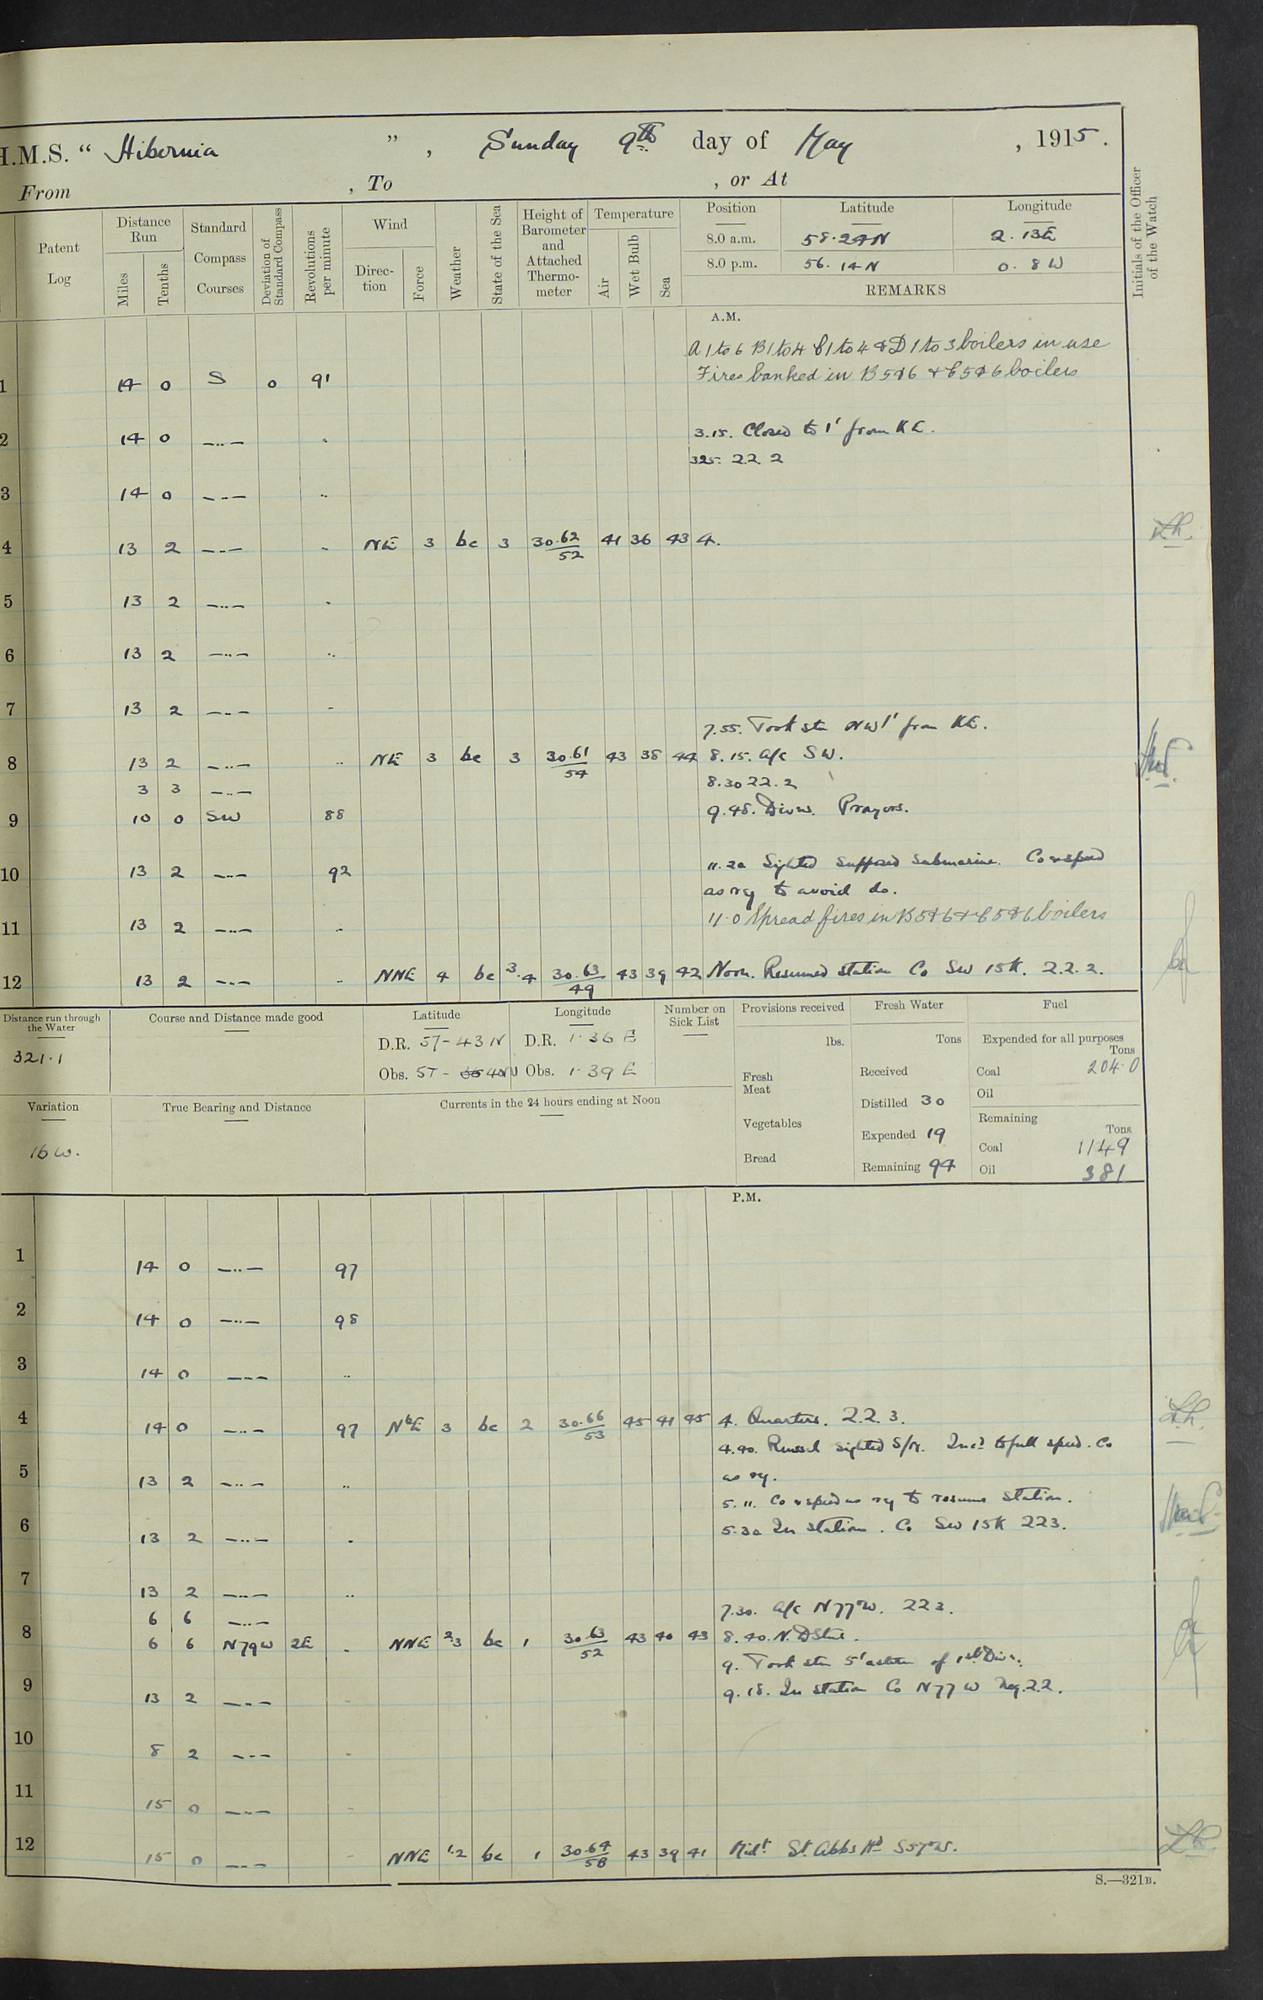 H.M.S. " Hibernia " , Sunday 9th day of May , 1915.
From , To , or At
Patent Log
Distance Run
Miles
Tenths
Standard Compass Courses
Deviation of Standard Compass
Revolutions per minute
Wind
Direction
Force
Weather
State of the Sea
Height of Barometer and Attached Thermometer
Temperature
Air
Wet Bulb
Sea
Position Latitude Longitude
8.0 a.m. 58.24N 2.13E
8.0 p.m. 56.14N 0.8W
REMARKS
Initials of the Officer of the Watch
A.M.
A 1 to 6 B 1 to 4 C 1 to 4 & D 1 to 3 boilers in use
1 14 0 S 0 91 Fires banked in B 5&6 & C 5&6 boilers
2 14 0 —..— " 3.15. Closed to 1' from K.E.
3.25. 2.2.2
3 14 0 —..— "
4 13 2 —..— " NE 3 bc 3 30.62/52 41 36 43 4.
5 13 2 —..— "
6 13 2 —..— "
7 13 2 —..— "
7.55. Took stn NW 1' from KE.
8 13 2 —..— " NE 3 bc 3 30.61/54 43 38 44 8.15. a/c SW.
3 3 —..— 8.30 22.2
9 10 0 SW 88 9.45. Divns. Prayers.
10 13 2 —..— 92 11.20 Sighted supposed submarine. Co & speed
as rq to avoid do.
11 13 2 —..— " 11.0 Spread fires in B 5&6 & C 5&6 boilers
12 13 2 —..— " NNE 4 bc 3.4 30.63/49 43 39 42 Noon. Resumed station Co SW 15K. 2.2.2.
Distance run through the Water
321.1
Course and Distance made good
Latitude
D.R. 57-43 N
Obs. 57- 40N
Longitude
D.R. 1.36 E
Obs. 1.39 E
Number on Sick List
Provisions received
lbs.
Fresh Meat
Vegetables
Bread
Fresh Water
Tons
Received
Distilled 30
Expended 19
Remaining 94
Fuel
Expended for all purposes
Tons
Coal 204.0
Oil
Remaining
Tons
Coal 1149
Oil 381
Variation
16 W.
True Bearing and Distance
Currents in the 24 hours ending at Noon
P.M.
1 14 0 —..— 97
2 14 0 —..— 98
3 14 0 —..— "
4 14 0 —..— 97 NbE 3 bc 2 30.66/53 45 41 45 4. Quarters. 2.2.3.
4.40. Russell sighted S/M. Incd to full speed. Co
5 13 2 —..— " as rq.
5.11. Co & speed as rq to resume station.
6 13 2 —..— " 5.30 In station. Co SW 15K 223.
7 13 2 —..— "
6 6 —..— 7.30. a/c N77W. 223.
8 6 6 N79W 2E " NNE 2.3 bc 1 30.63/52 43 40 43 8.40. N.D Stns.
9. Took stn 5' astern of 1st Divn.
9 13 2 —..— " 9.18. In station Co N77W Neg.22.
10 8 2 —..— "
11 15 0 —..— "
12 15 0 —..— " NNE 1.2 bc 1 30.64/58 43 39 41 Midt St. Abbs Hd S57W.
S.—321B.